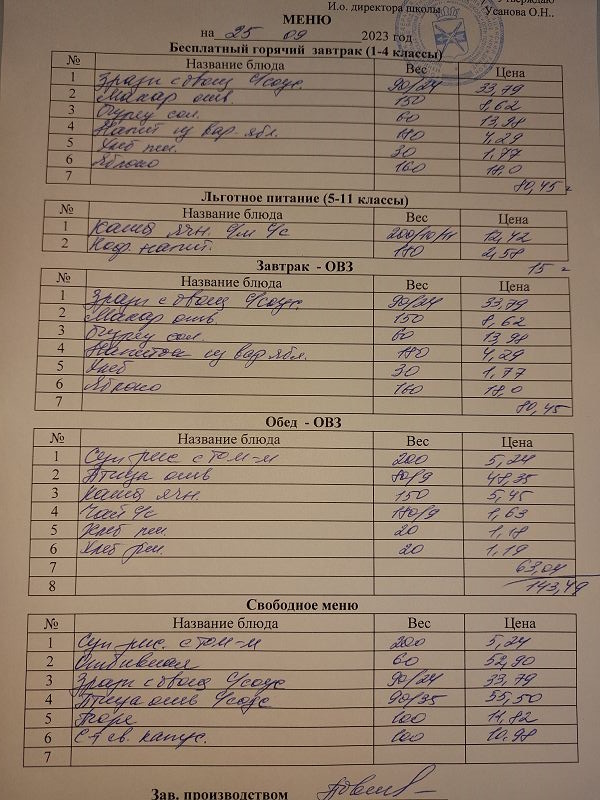 Утверждаю
И.о. директора школы Усанова О.Н..
МЕНЮ
на 25 09 2023 год
Бесплатный горячий завтрак (1-4 классы)
№ Название блюда Вес Цена
1 Зразы с овощ с/соус. 90/24 33,79
2 Макар отв. 150 8,62
3 Огурец сол. 60 13,98
4 Напит из вар. ябл. 180 4,29
5 Хлеб пш. 30 1,77
6 Яблоко 160 18,0
7 80,45
Льготное питание (5-11 классы)
№ Название блюда Вес Цена
1 Каша ячн. с/м с/с 12,42
2 Коф. напит. 180 2,58
15
Завтрак - ОВЗ
№ Название блюда Вес Цена
1 Зразы с овощ с/соус 90/24 33,79
2 Макар отв. 150 8,62
3 Огурец сол. 60 13,98
4 Напиток из вар ябл. 180 4,29
5 Хлеб 30 1,77
6 Яблоко 160 18,0
7 80,45
Обед - ОВЗ
№ Название блюда Вес Цена
1 Суп рис с том-м 200 5,24
2 Птица отв 80/9 48,35
3 Каша ячн. 150 5,45
4 Чай с/с 180/9 1,63
5 Хлеб пш. 20 1,18
6 Хлеб рж. 20 1,19
7 63,04
8 143,49
Свободное меню
№ Название блюда Вес Цена
1 Суп рис. с том-м 200 5,24
2 Отбивная 60 52,90
3 Зразы с овощ с/соус 90/24 33,79
4 Птица отв с/соус 90/35 55,50
5 Пюре 100 11,82
6 С-т св. капус. 100 10,98
7
Зав. производством